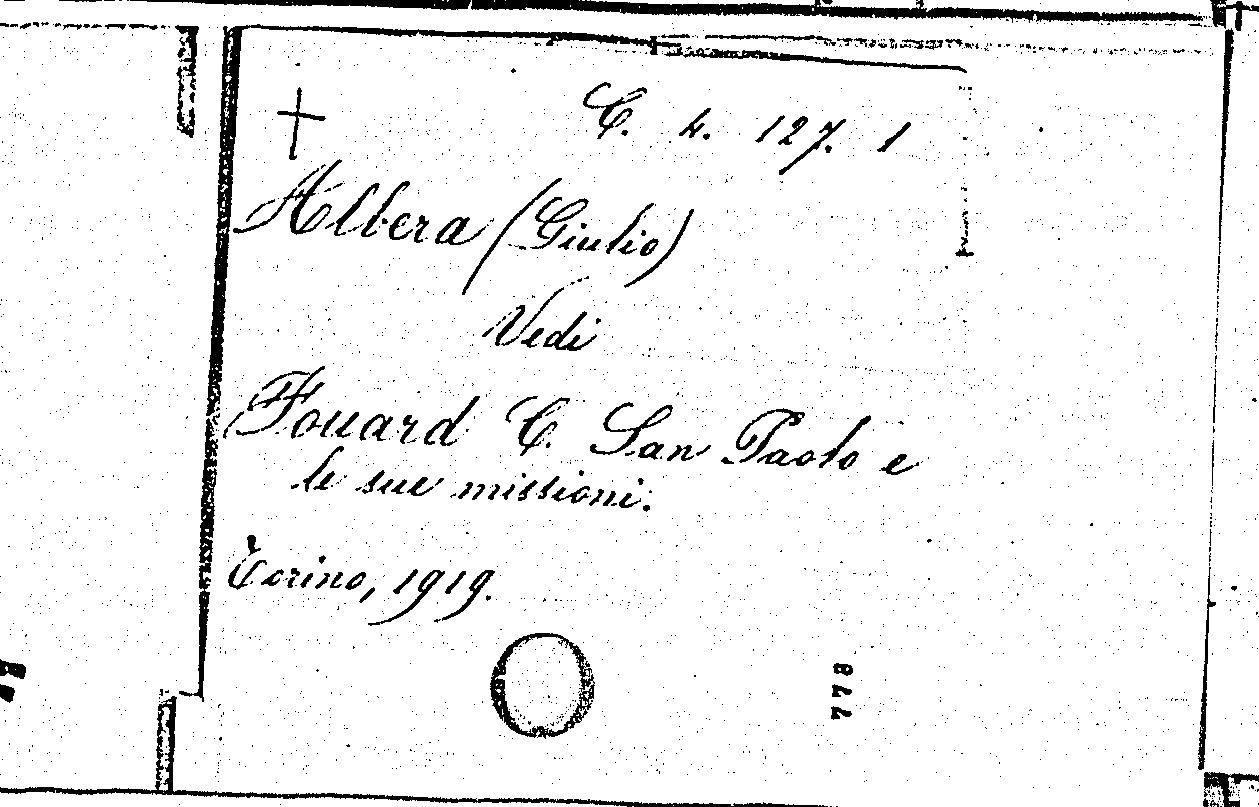 +
C. 4. 127. 1
Albera (Giulio)
Vedi
Fouard C. San Paolo e
le sue missioni.
Torino, 1919.
778